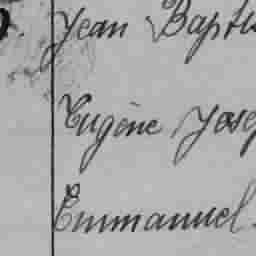 Jean Baptis
Eugène Josep
Emmanuel.